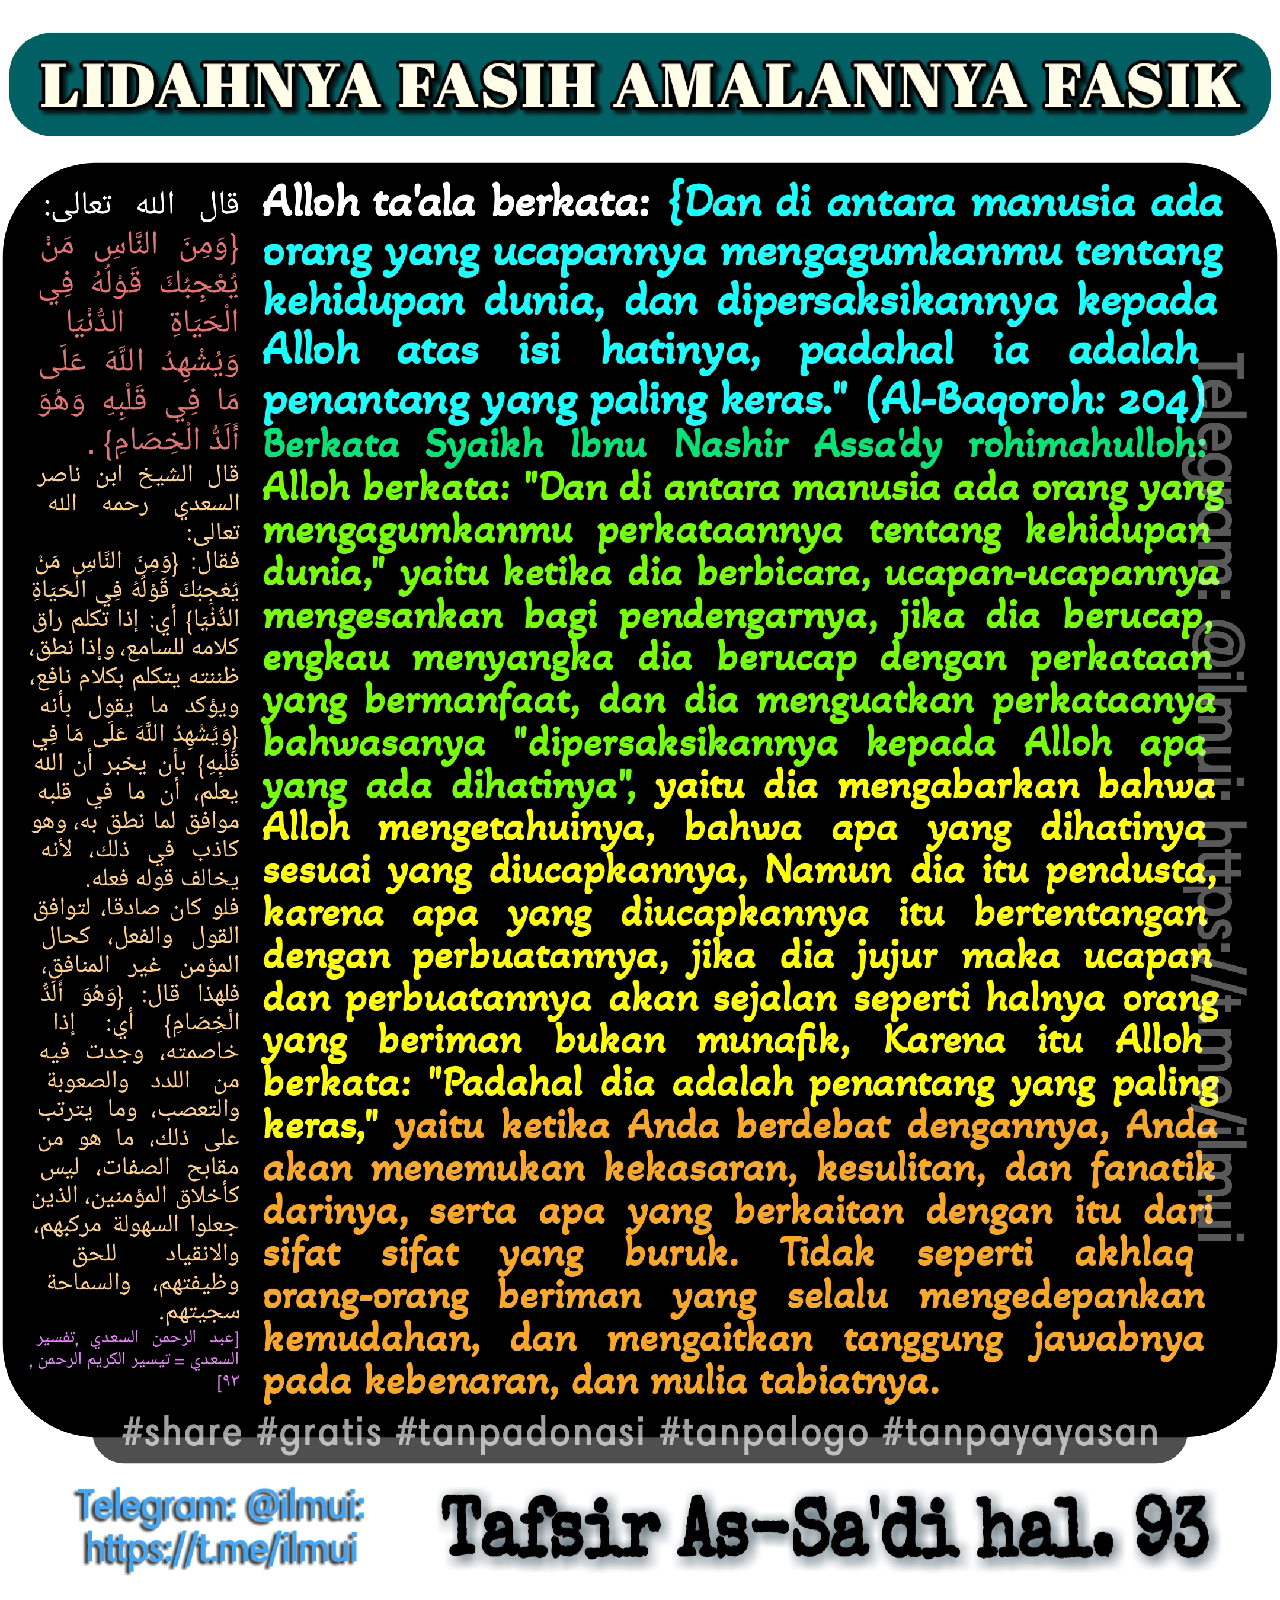 LIDAHNYA FASIH AMALANNYA FASIK
قال الله تعالى:
{وَمِنَ النَّاسِ مَنْ
يُعْجِبُكَ قَوْلُهُ فِي
الْحَيَاةِ الدُّنْيَا
وَيُشْهِدُ اللَّهَ عَلَى
مَا فِي قَلْبِهِ وَهُوَ
أَلَدُّ الْخِصَامِ} .
قال الشيخ ابن ناصر
السعدي رحمه الله
تعالى:
فقال: {وَمِنَ النَّاسِ مَنْ
يُعْجِبُكَ قَوْلُهُ فِي الْحَيَاةِ
الدُّنْيَا} أي: إذا تكلم راق
كلامه للسامع، وإذا نطق،
ظننته يتكلم بكلام نافع،
ويؤكد ما يقول بأنه
{وَيُشْهِدُ اللَّهَ عَلَى مَا فِي
قَلْبِهِ} بأن يخبر أن الله
يعلم، أن ما في قلبه
موافق لما نطق به، وهو
كاذب في ذلك، لأنه
يخالف قوله فعله.
فلو كان صادقا، لتوافق
القول والفعل، كحال
المؤمن غير المنافق،
فلهذا قال: {وَهُوَ أَلَدُّ
الْخِصَامِ} أي: إذا
خاصمته، وجدت فيه
من اللدد والصعوبة
والتعصب، وما يترتب
على ذلك، ما هو من
مقابح الصفات، ليس
كأخلاق المؤمنين، الذين
جعلوا السهولة مركبهم،
والانقياد للحق
وظيفتهم، والسماحة
سجيتهم.
[عبد الرحمن السعدي ,تفسير
السعدي = تيسير الكريم الرحمن ,
٩٣]
Alloh ta'ala berkata: {Dan di antara manusia ada
orang yang ucapannya mengagumkanmu tentang
kehidupan dunia, dan dipersaksikannya kepada
Alloh atas isi hatinya, padahal ia adalah
penantang yang paling keras." (Al-Baqoroh: 204)
Berkata Syaikh Ibnu Nashir Assa'dy rohimahulloh:
Alloh berkata: "Dan di antara manusia ada orang yang
mengagumkanmu perkataannya tentang kehidupan
dunia," yaitu ketika dia berbicara, ucapan-ucapannya
mengesankan bagi pendengarnya, jika dia berucap,
engkau menyangka dia berucap dengan perkataan
yang bermanfaat, dan dia menguatkan perkataanya
bahwasanya "dipersaksikannya kepada Alloh apa
yang ada dihatinya", yaitu dia mengabarkan bahwa
Alloh mengetahuinya, bahwa apa yang dihatinya
sesuai yang diucapkannya, Namun dia itu pendusta,
karena apa yang diucapkannya itu bertentangan
dengan perbuatannya, jika dia jujur maka ucapan
dan perbuatannya akan sejalan seperti halnya orang
yang beriman bukan munafik, Karena itu Alloh
berkata: "Padahal dia adalah penantang yang paling
keras," yaitu ketika Anda berdebat dengannya, Anda
akan menemukan kekasaran, kesulitan, dan fanatik
darinya, serta apa yang berkaitan dengan itu dari
sifat sifat yang buruk. Tidak seperti akhlaq
orang-orang beriman yang selalu mengedepankan
kemudahan, dan mengaitkan tanggung jawabnya
pada kebenaran, dan mulia tabiatnya.
Telegram: @ilmui: https://t.me/ilmui
#share #gratis #tanpadonasi #tanpalogo #tanpayayasan
Telegram: @ilmui:
https://t.me/ilmui
Tafsir As-Sa'di hal. 93